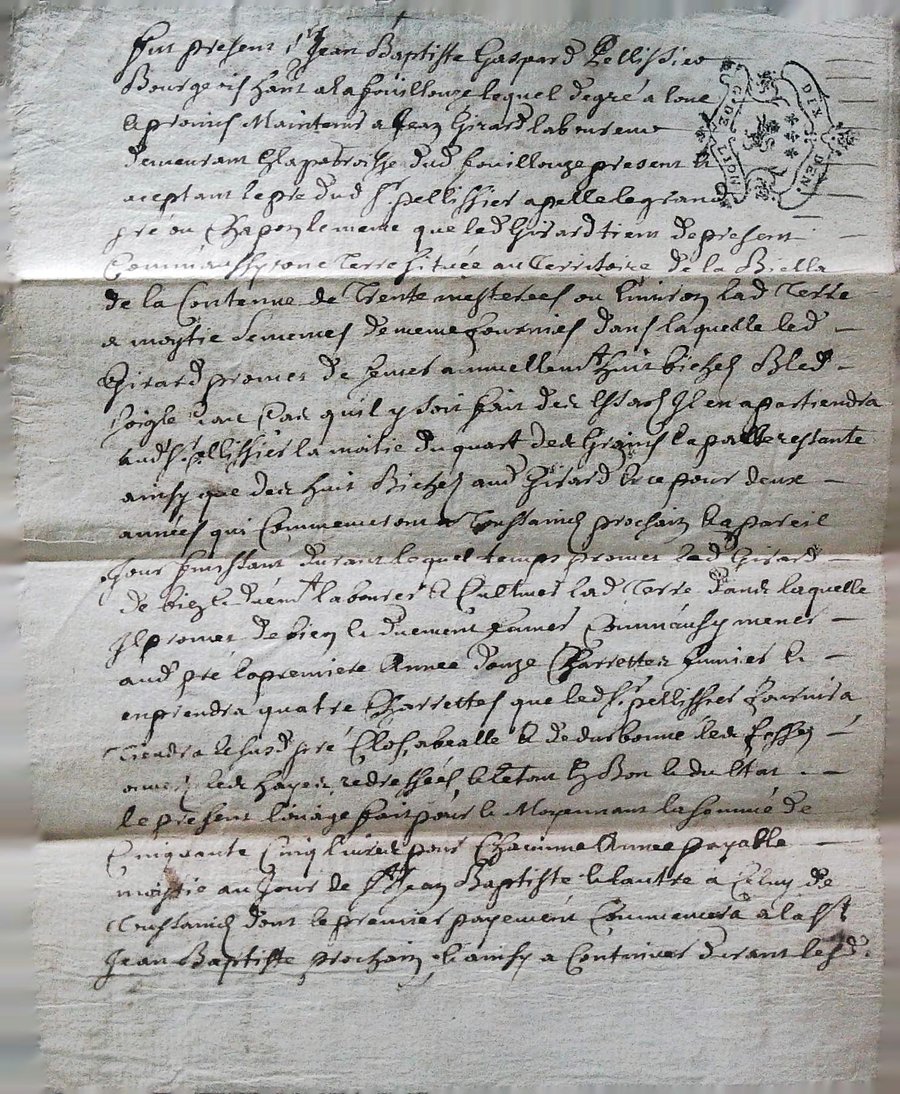 fut present Sr Jean Baptiste Gaspard Pellissier
Bourgeois hant a la fouillouze lequel de gré a loué
et promis Maintenir a Jean Girard laboureur
demeurant en la parroisse dud fouillouze present et
aceptant le pré dud Sr pellissier apellé le grand
pré ou le meme que led Girard tient de present
Comm'aussy une Terre située au Territoire de la Biella
de la Contenue de Trente mesterees ou Environ lad Terre
a moytie Semences de meme fournies dans laquelle led
Girard promet de annuellemt huit bichets Bled
Soigle Cas qu'il y soit fait des Essarts Il en apartiendra
aud Sr pellissier la moitié du quart des Grains la paille restante
ainsy que des huit Bichets aud Girard & ce pour deux
années qui Commenceront a Toussaincts prochain & a pareil
Jour finissant durant lequel temps promet led Girard
de bien & duëmt labourer & Cultiver lad Terre dans laquelle
Il promet de bien & duement fumer Comm'aussy mener
aud pré la premiere Année douze Charrettes fumier &
en prendra quatre Charrettes que led Sr pellissier fournira
Tiendra le susd pré Clos, & les fossés
les hayes redressées, le tout En Bon & du Estat
le present fait pour & Moyennant la somme de
Cinquante Cinq livres pour Chacunne Année payable
moytie au Jour de St Jean Baptiste & l'autre a Celuy de
Toussaincts dont le premier payement Commencera a la St
Jean Baptiste prochain & ainsy a Continuer durant lesd
G DE LION
DIX DEN